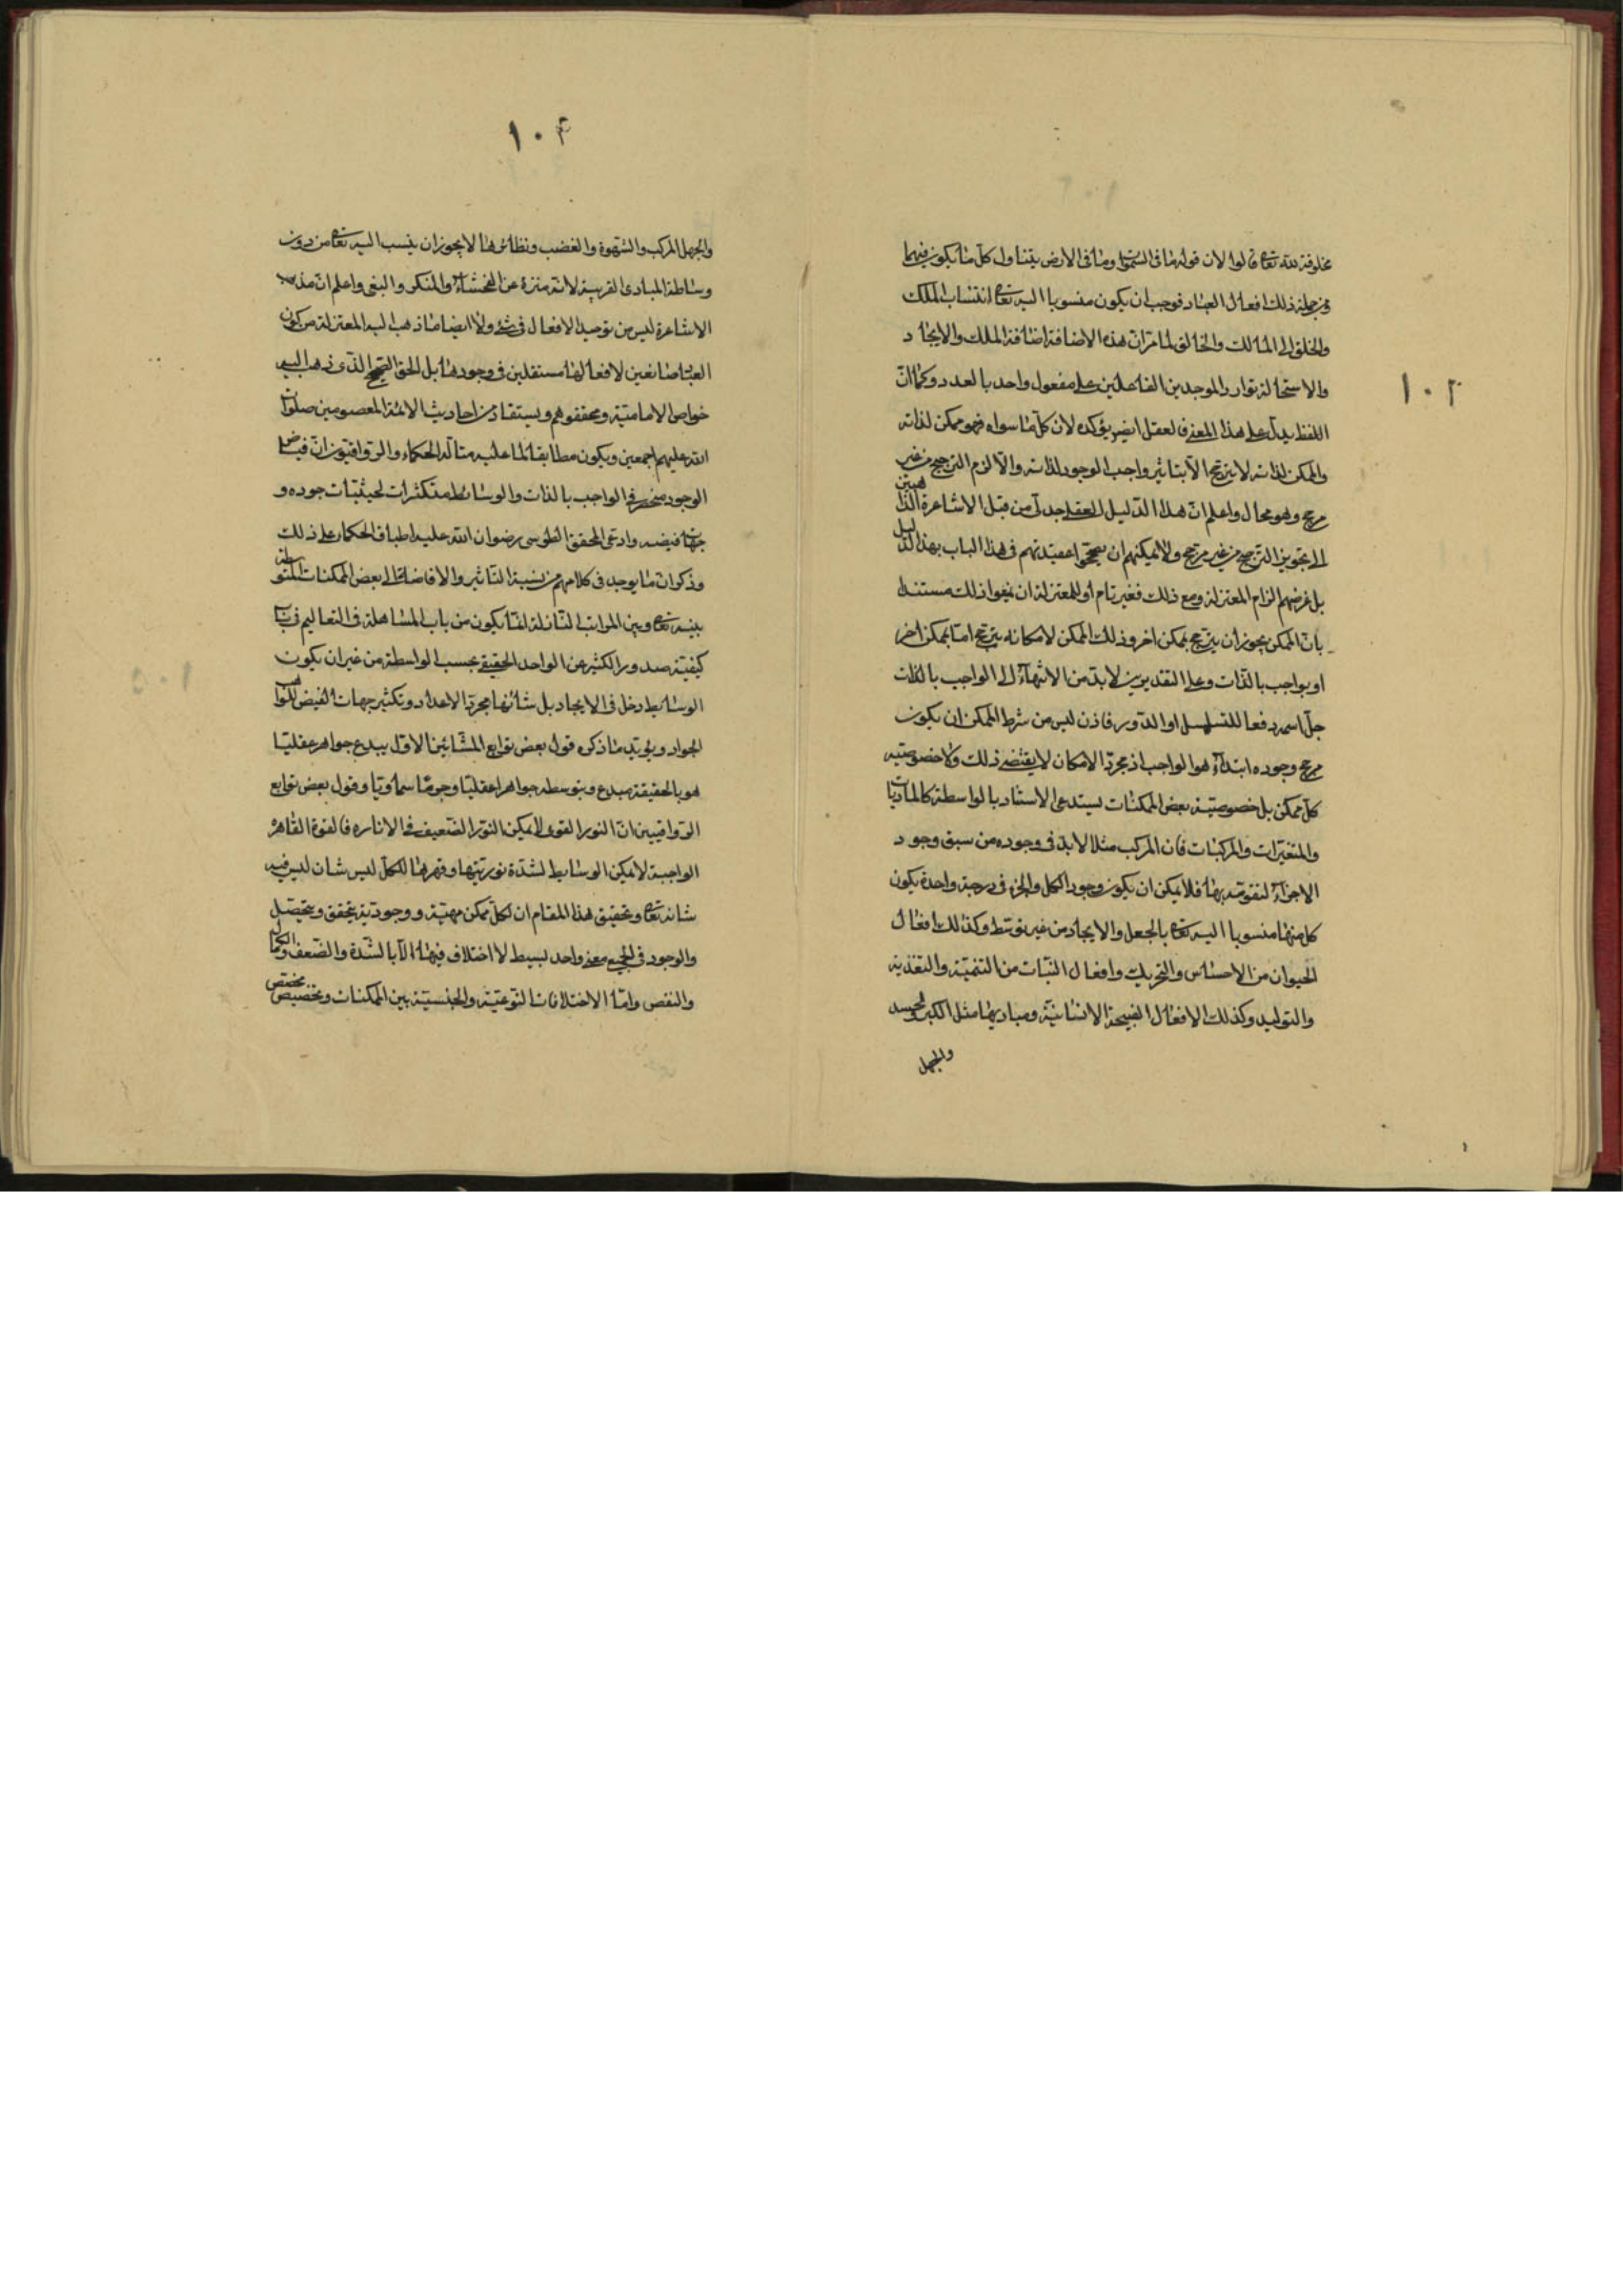 ١٠٣
مخلوقة لله تعا قالوا لان قوله ما فى السموات وما فى الارض يتناول كل ما يكون فيهما
ومن جملة ذلك افعال العباد فوجب ان يكون منسوبا اليه تعا انتساب الملك
والخلق الى المالك والخالق لما مر ان هذه الاضافة اضافة الملك والايجاد
والاستحالة توارد الموجدين الفاعلين على مفعول واحد بالعدد وكما ان
اللفظ يدل على هذا المعنى فالعقل ايضا يؤكده لان كل ما سواه فهو ممكن لذاته
والممكن لذاته لا يترجح الا بتاثير واجب الوجود لذاته والا لزم الترجيح من غير
مرجح وهو محال واعلم ان هذا الدليل العقلى جدلى من قبل الاشاعرة الذاهبين
الى تجويز الترجيح من غير مرجح ولا يمكنهم ان يصححوا عقيدتهم فى هذا الباب بهذا الدليل
بل غرضهم الزام المعتزلة ومع ذلك فغير تام اذ للمعتزلة ان يقولوا ذلك مستندا
بان الممكن يجوز ان يترجح بممكن اخر وذلك الممكن لامكانه يترجح اما بممكن اخر
او بواجب بالذات وعلى التقديرين لابد من الانتهاء الى الواجب بالذات
جل اسمه دفعا للتسلسل او الدور فاذن ليس من شرط الممكن ان يكون
مرجح وجوده ابتداء هو الواجب اذ مجرد الامكان لا يقتضى ذلك ولا خصوصية
كل ممكن بل خصوصية بعض الممكنات يستدعى الاستناد بالواسطة كالماديات
والمتغيرات والمركبات فان المركب مثلا لابد فى وجوده من سبق وجود
الاجزاء لتقومه بها فلا يمكن ان يكون وجود الكل والجزء فى درجة واحدة يكون
كل منهما منسوبا اليه تعا بالجعل والايجاد من غير توسط وكذلك افعال
الحيوان من الاحساس والتحريك وافعال النبات من التنمية والتغذية
والتوليد وكذلك الافعال القبيحة الانسانية ومباديها مثل الكبر والحسد
والجهل
١٠۴
والجهل المركب والشهوة والغضب ونظائرها لا يجوز ان ينسب اليه تعا من دون
وساطة المبادى القريبة لانه منزه عن الفحشاء والمنكر والبغى واعلم ان مذهب
الاشاعرة ليس من توحيد الافعال فى شئ ولا ايضا ما ذهب اليه المعتزلة من كون
العباد صانعين لافعالها مستقلين فى وجودها بل الحق الصحيح الذى ذهب اليه
خواص الامامية ومحققوهم ويستفاد من احاديث الائمة المعصومين صلوات
الله عليهم اجمعين ويكون مطابقا لما عليه متألهة الحكماء والرواقيون ان فياض
الوجود منحصر فى الواجب بالذات والوسائط متكثرات لحيثيات جوده و
جهات فيضه وادعى المحقق الطوسى رضوان الله عليه اطباق الحكماء على ذلك
وذكر ان ما يوجد فى كلامهم من نسبة التاثير والافاضة الى بعض الممكنات المتوسطة
بينه تعا وبين المراتب النازلة انما يكون من باب المساهلة فى التعاليم فى باب
كيفية صدور الكثير عن الواحد الحقيقى بحسب الواسطة من غير ان يكون
الوسائط دخل فى الايجاد بل شانها مجرد الاعداد وتكثير جهات الفيض للواهب
الجواد ويؤيد ما ذكره قول بعض توابع المشائين الاول يبدع جوهرا عقليا
هو بالحقيقة مبدع وبتوسطه جواهرا عقليا وجرما سماويا وقول بعض توابع
الرواقيين ان النور القوى لا يمكن النور الضعيف فى الانارة فالقوة القاهرة
الواجبة لا يمكن الوسائط لشدة نوريتها وقهرها للكل ليس شان ليس فيه
شانه تعا وتحقيق هذا المقام ان لكل ممكن مهية ووجود تية يتحقق ويتحصل
والوجود فى الجميع معنى واحد بسيط لا اختلاف فيها الا بالشدة والضعف والكمال
والنقص واما الاختلافات النوعية والجنسية بين الممكنات وتخصيص مختص